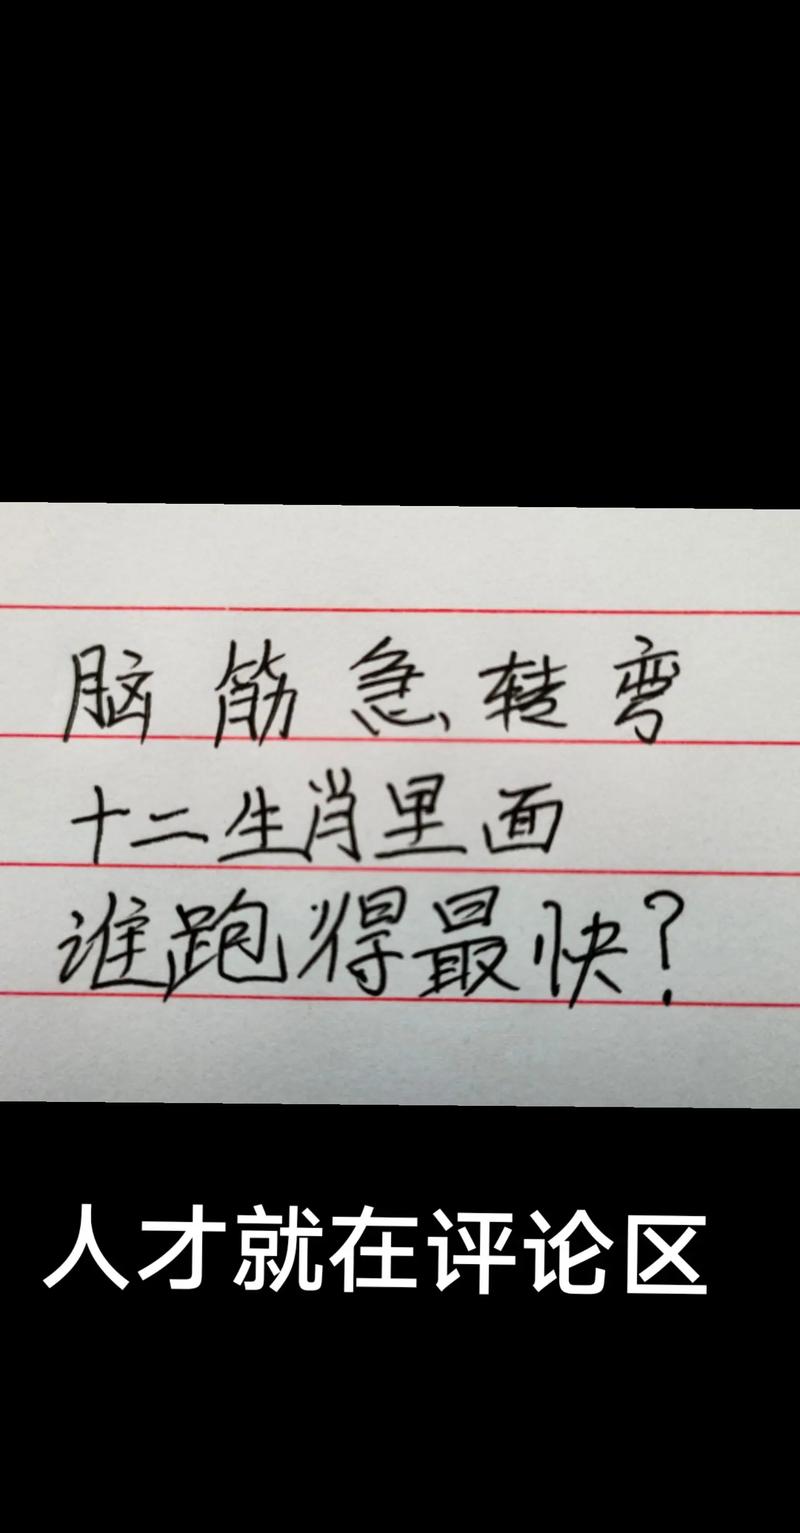 脑筋急转弯
十二生肖里面
谁跑得最快?
人才就在评论区